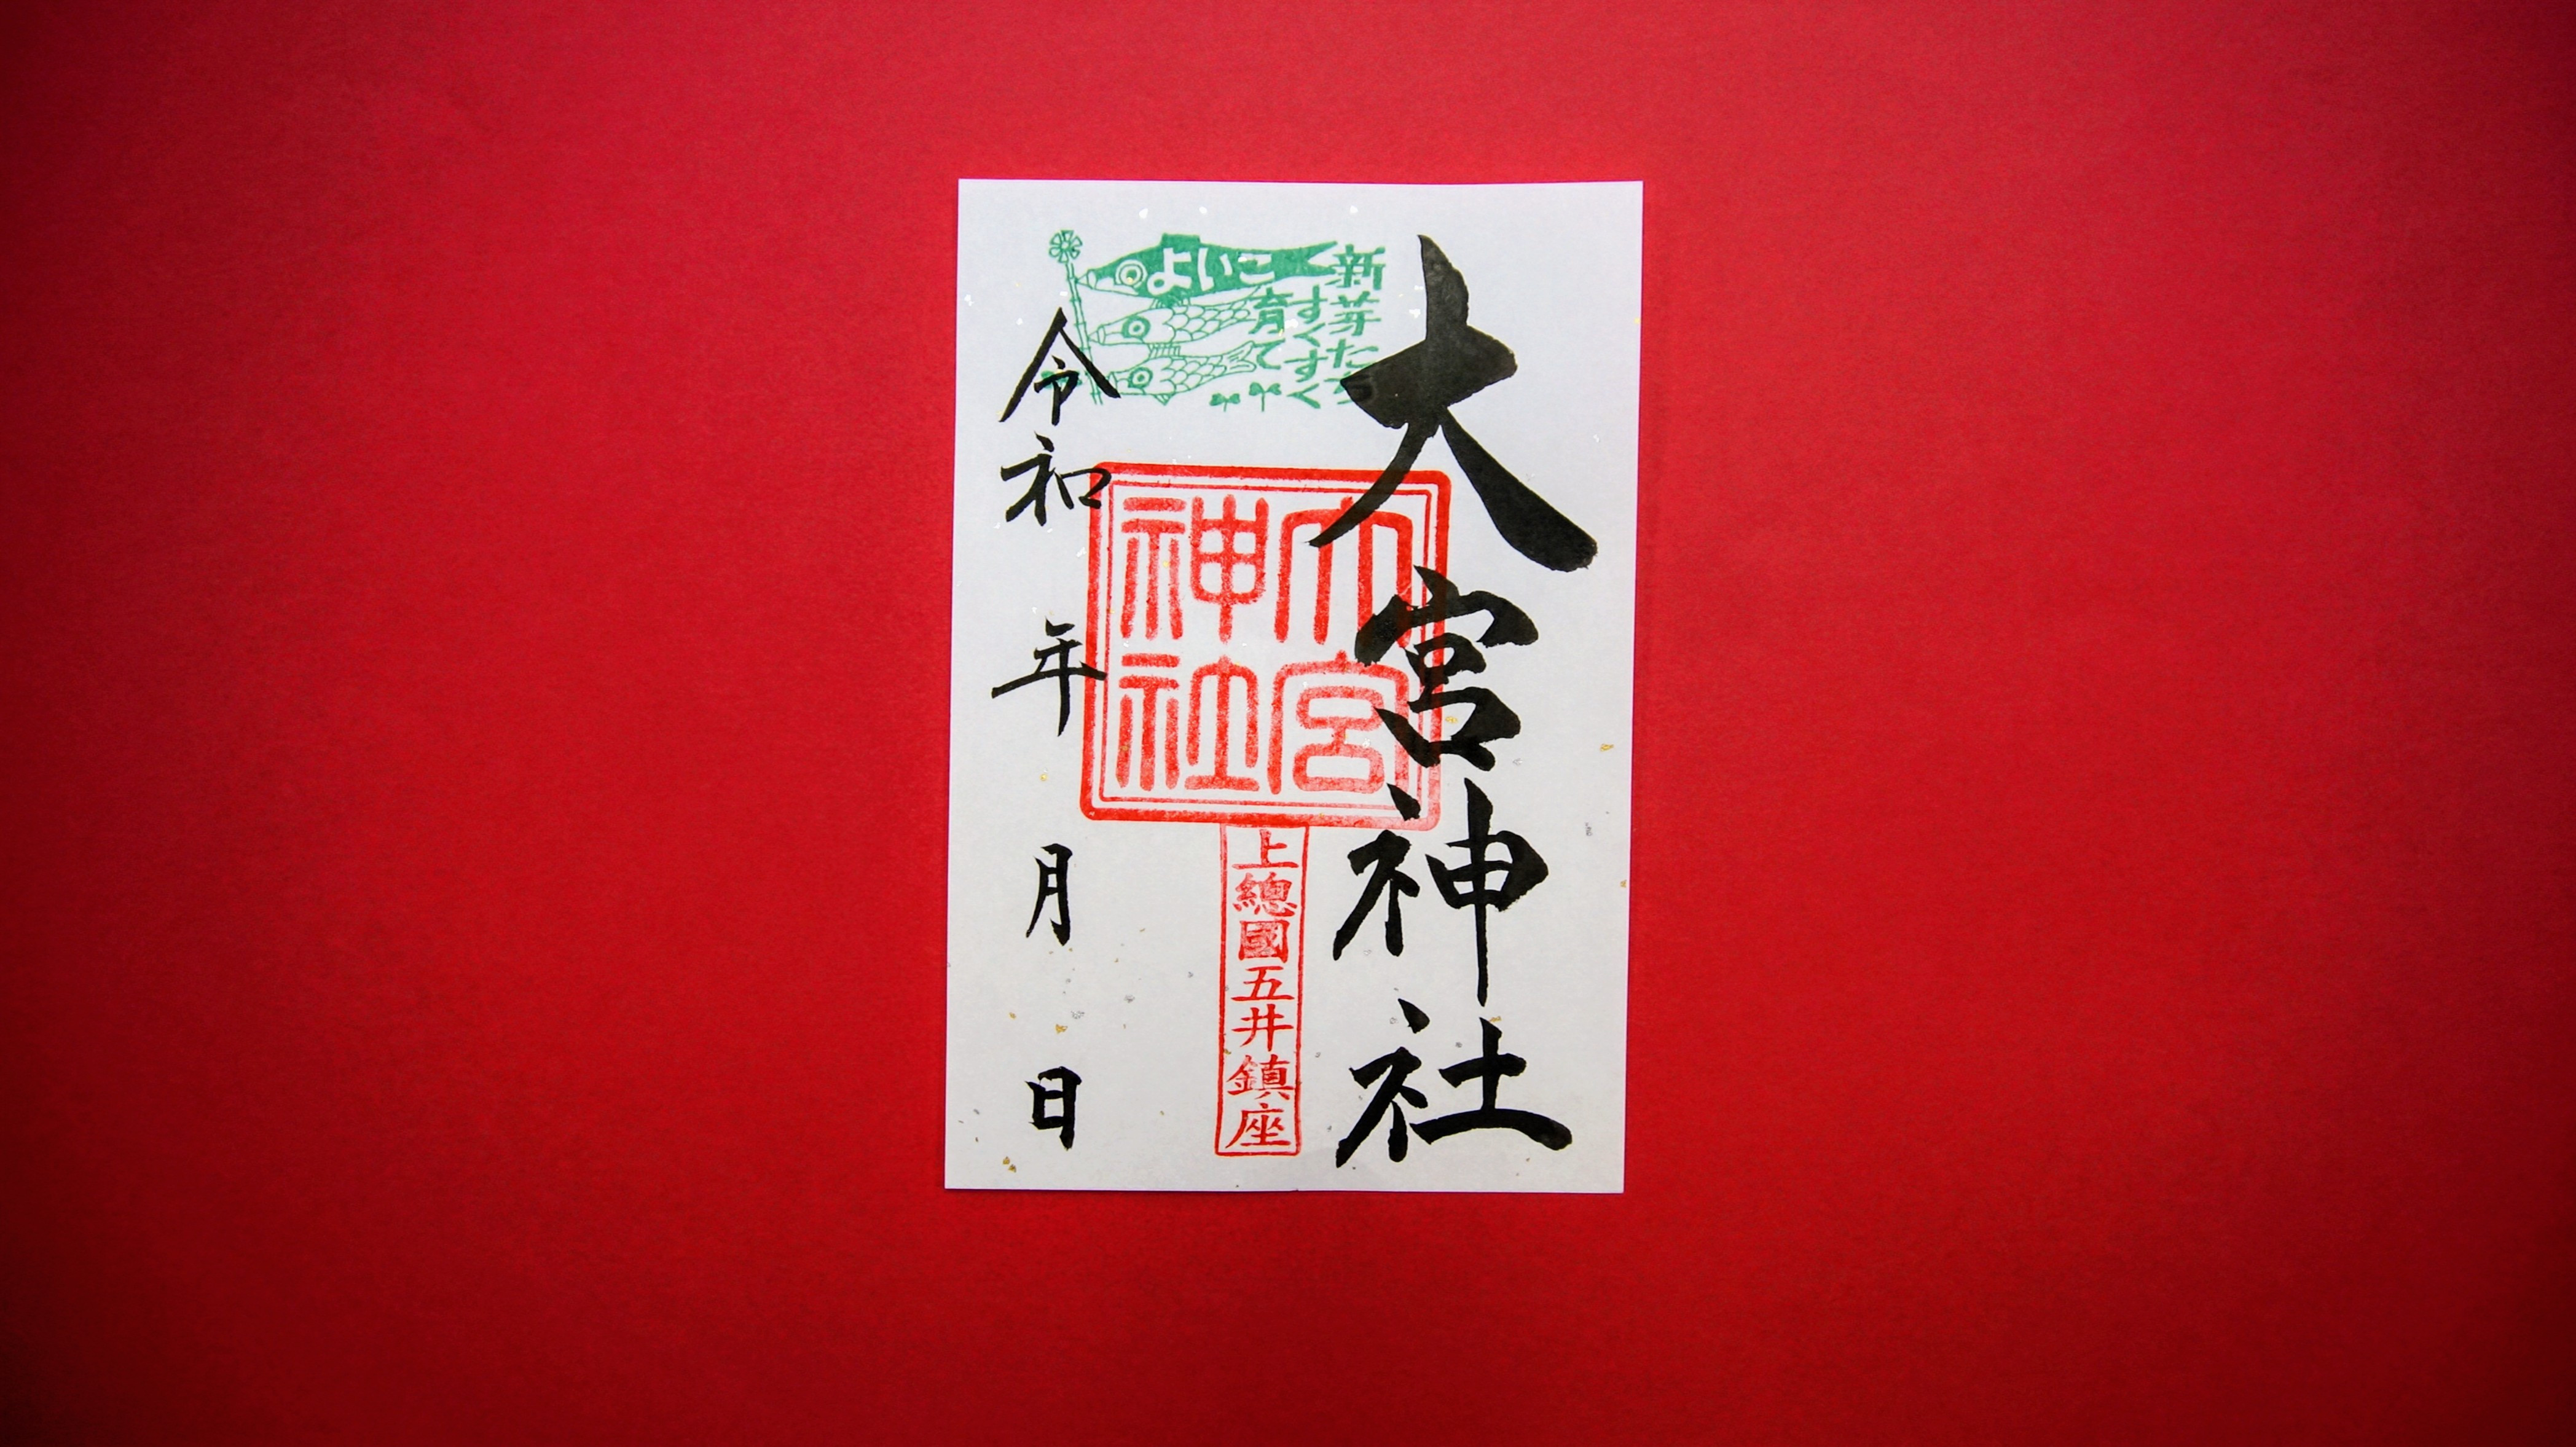 大宮神社
新芽たち
すくすく
育て
よいこ
大宮
神社
上總國五井鎮座
令和 年 月 日